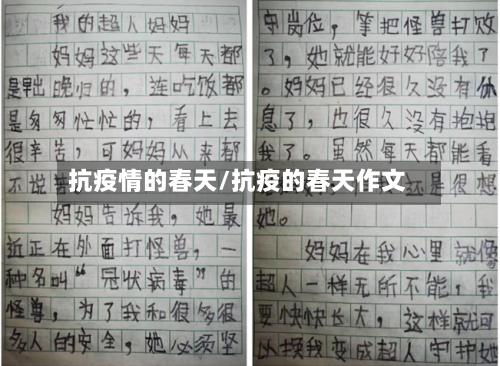 我的超人妈妈
妈妈这些天每天都
是早出晚归的，连吃饭都
是匆匆忙忙的，看上去
很辛苦，可妈妈从来都
不说
妈妈告诉我，她最
近正在外面打怪兽，一
种名叫“冠状病毒”的
怪兽，为了我和很多很
多人的安全，她必须坚
守岗位，等把怪兽打败
了，她就能好好陪我了
。妈妈已经很久没有休
息了，也很久没有抱抱
我了。虽然每天都能看
还是很想
她。
妈妈在我心里就像
超人一样无所不能，我
要快快长大，这样就可
以换我变成超人守护她
抗疫情的春天/抗疫的春天作文